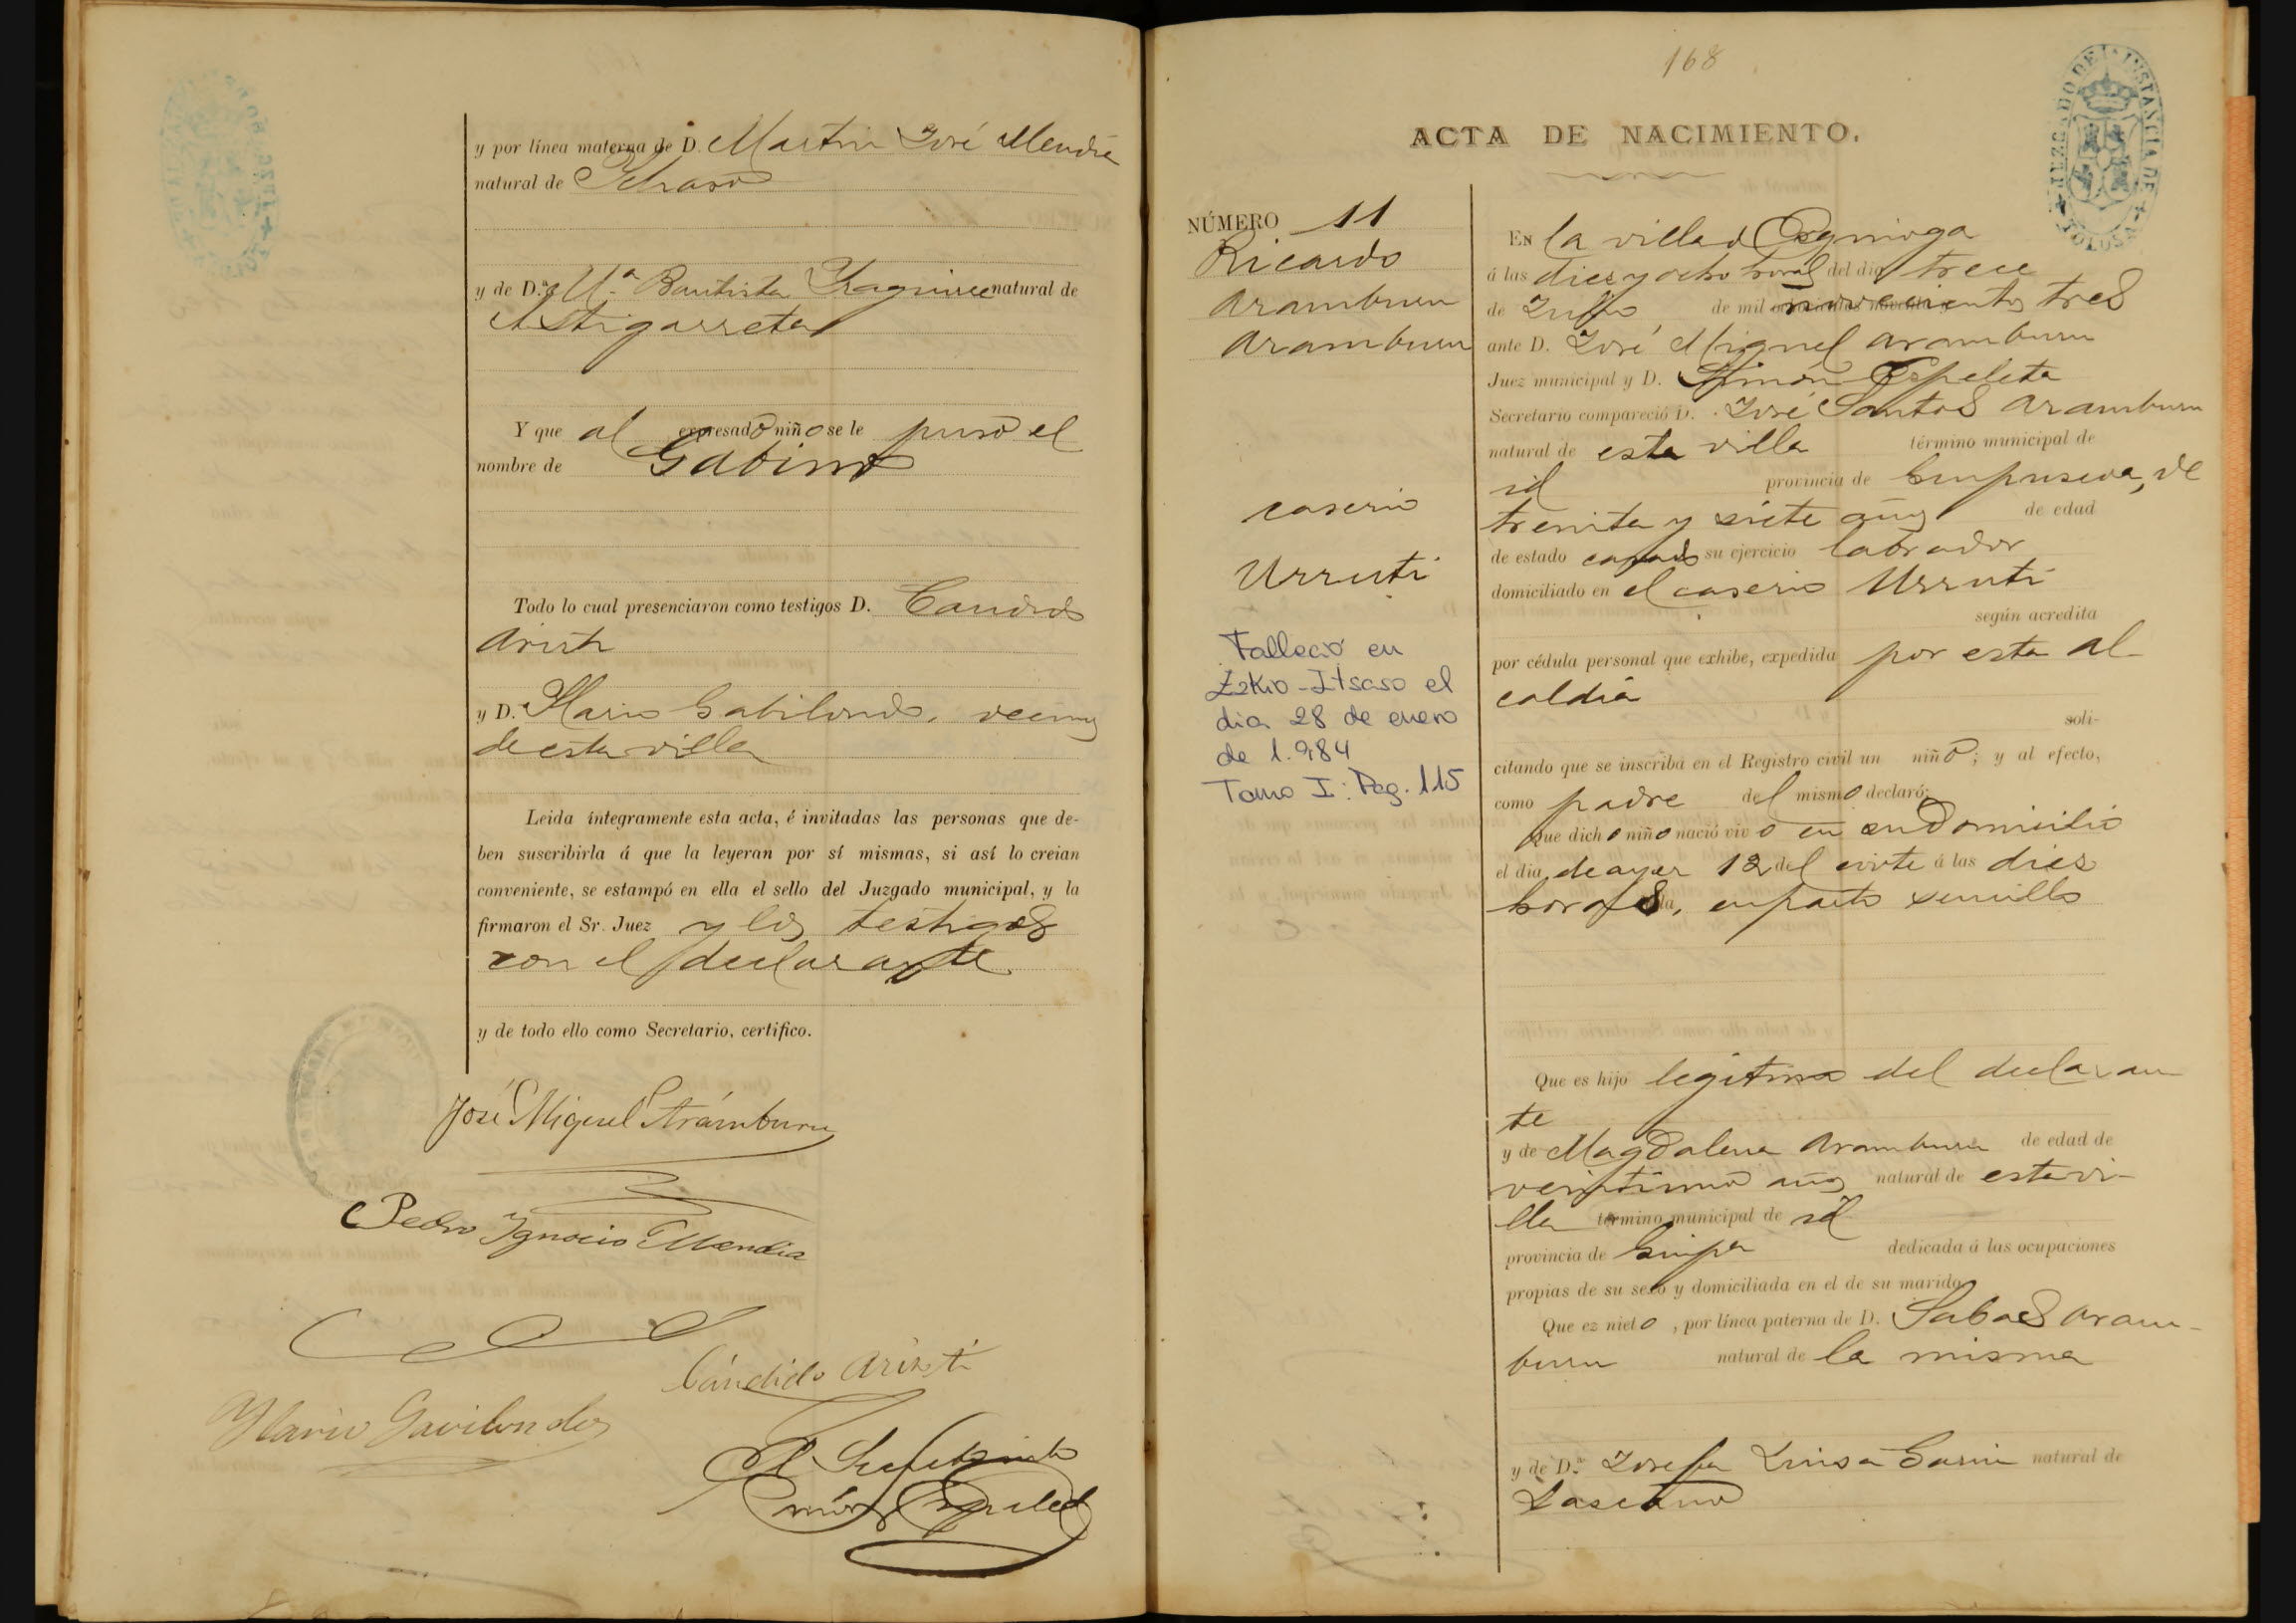 y por línea materna de D. Martin José Mendia
natural de Ichaso
y de D.ª M.ª Bautista Yraguirre natural de
Astigarreta
Y que al expresado niño se le puso el
nombre de Gabino
Todo lo cual presenciaron como testigos D. Candido
Aristi
y D. Ylario Gabilondo, vecinos
de esta villa
Leida íntegramente esta acta, é invitadas las personas que de-
ben suscribirla á que la leyeran por sí mismas, si así lo creian
conveniente, se estampó en ella el sello del Juzgado municipal, y la
firmaron el Sr. Juez y los testigos
con el declarante
y de todo ello como Secretario, certifico.
José Miguel Aramburu
Pedro Ignacio Mendia
Cándido Aristi
Ylario Gavilondo
168
JUZGADO DE 1.ª INSTANCIA DE TOLOSA
ACTA DE NACIMIENTO.
NÚMERO 11
Ricardo
Aramburu
Aramburu
caserio
Urruti
Falleció en
Ezkio-Itsaso el
dia 28 de enero
de 1.984
Tomo I: Pag. 115
En la villa d Ezquioga
á las diez y ocho horas del dia trece
de Julio de mil novecientos tres
ante D. José Miguel Aramburu
Juez municipal y D. Simón Ezpeleta
Secretario compareció D. José Santos Aramburu
natural de esta villa término municipal de
id provincia de Guipuscoa, de
treinta y siete años de edad
de estado casado su ejercicio labrador
domiciliado en el caserio Urruti
según acredita
por cédula personal que exhibe, expedida por esta al
caldia
soli-
citando que se inscriba en el Registro civil un niño; y al efecto,
como padre del mismo declaró:
Que dicho niño nació vivo en su domicilio
el dia de ayer 12 del cirte á las diez
horas, en parto sencillo
Que es hijo legitimo del declaran
te
y de Magdalena Aramburu de edad de
años natural de esta vi-
lla término municipal de id
provincia de Guipa dedicada á las ocupaciones
propias de su sexo y domiciliada en el de su marido
Que ez nieto, por línea paterna de D. Sabas Aram-
buru natural de la misma
y de D.ª Josefa Luisa Garin natural de
Lascano